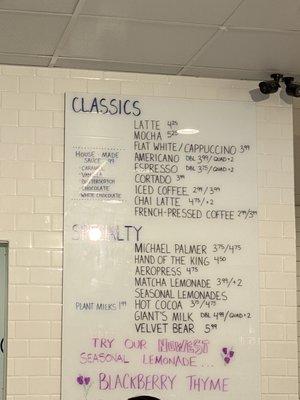 CLASSICS
LATTE 4.25
MOCHA 5.25
FLAT WHITE/CAPPUCCINO 3.99
AMERICANO DBL 3.99/QUAD+2
ESPRESSO DBL 3.75/QUAD+2
CORTADO 3.99
ICED COFFEE 2.99/3.99
CHAI LATTE 4.75/+2
FRENCH-PRESSED COFFEE 2.99/3.99
HOUSE-MADE
SAUCE .99
- CARAMEL
- VANILLA
- BUTTERSCOTCH
- CHOCOLATE
- WHITE CHOCOLATE
SPECIALTY
MICHAEL PALMER 3.75/4.75
HAND OF THE KING 4.50
AEROPRESS 4.75
MATCHA LEMONADE 3.99/+2
SEASONAL LEMONADES
HOT COCOA 3.75/4.75
GIANT'S MILK DBL 4.99/QUAD+2
VELVET BEAR 5.99
PLANT MILKS 1.99
TRY OUR NEWEST
SEASONAL LEMONADE...
BLACKBERRY THYME